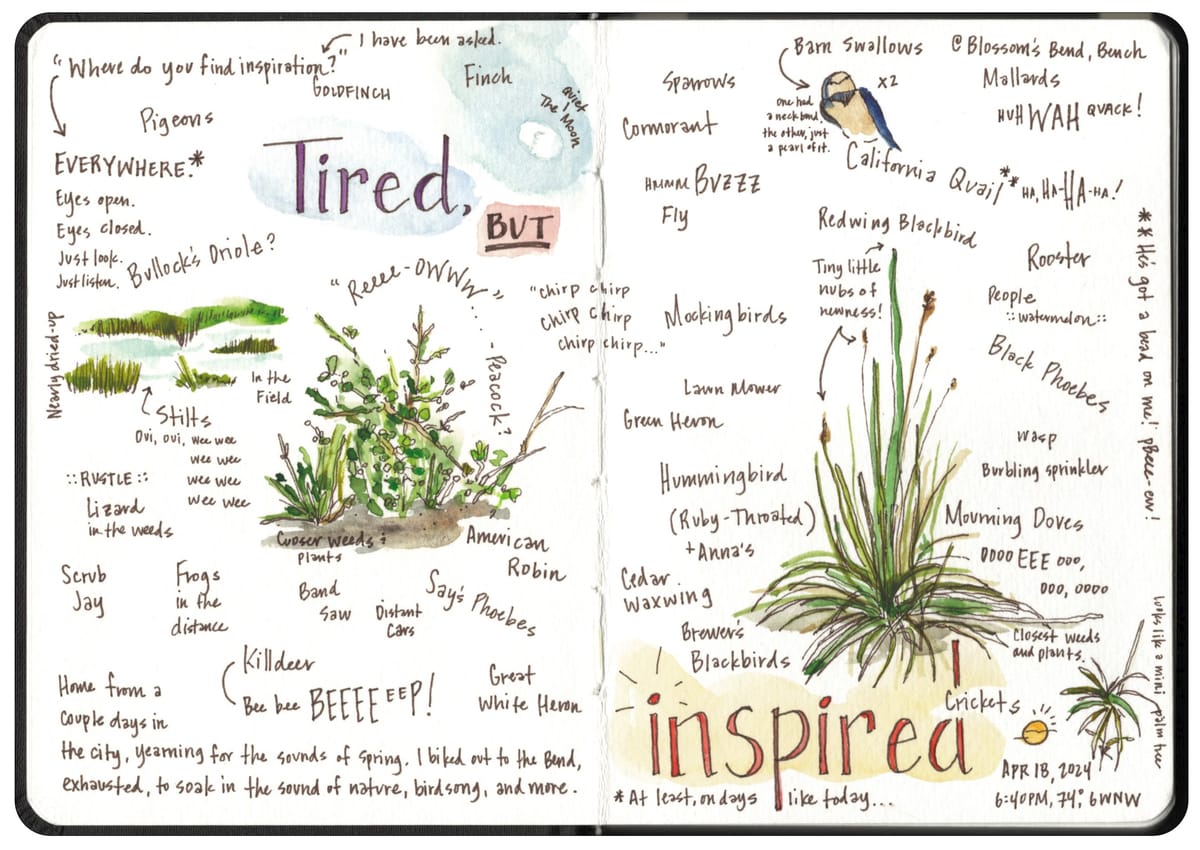 I have been asked.
"Where do you find inspiration?"
GOLDFINCH
Finch
quiet
The Moon
Pigeons
Tired,
BUT
EVERYWHERE.*
Eyes open.
Eyes closed.
Just look.
Just listen.
Bullock's Oriole?
"Reeee-OWWW"...
- Peacock?
"chirp chirp
chirp chirp
chirp chirp..."
Newly dried-up
In the
Field
Stilts
Ovi, ovi, wee wee
wee wee
wee wee
wee wee
::RUSTLE::
Lizard
in the weeds
Closer weeds &
plants
American
Robin
Scrub
Jay
Frogs
in the
distance
Band
Saw
Distant
Cars
Say's Phoebes
Killdeer
Bee bee BEEEEEEP!
Great
White Heron
Home from a
couple days in
the city, yearning for the sounds of spring, I biked out to the Bend,
exhausted, to soak in the sound of nature, birdsong, and more.
Barn Swallows
@Blossom's Bend, Bench
Sparrows
x2
one had
a neckband,
the other, just
a pearl of it.
Mallards
HUH WAH QUACK!
Cormorant
California Quail** HA, HA-HA-HA!
Hmmmm BVZZZ
Fly
Redwing Blackbird
Tiny little
nubs of
newness!
Rooster
People
::watermelon::
Mockingbirds
Black Phoebes
**He's got a bead on me! pBeee-ew!
Lawn Mower
Green Heron
Wasp
Burbling sprinkler
Hummingbird
(Ruby-Throated)
+Anna's
Mourning Doves
OOOO EEE ooo,
ooo, oooo
Cedar
Waxwing
Brewer's
Blackbirds
Closest weeds
and plants.
looks like a mini palm tree
inspired
Crickets
APR 18, 2024
6:40PM, 74°, 6WNW
*At least, on days like today...